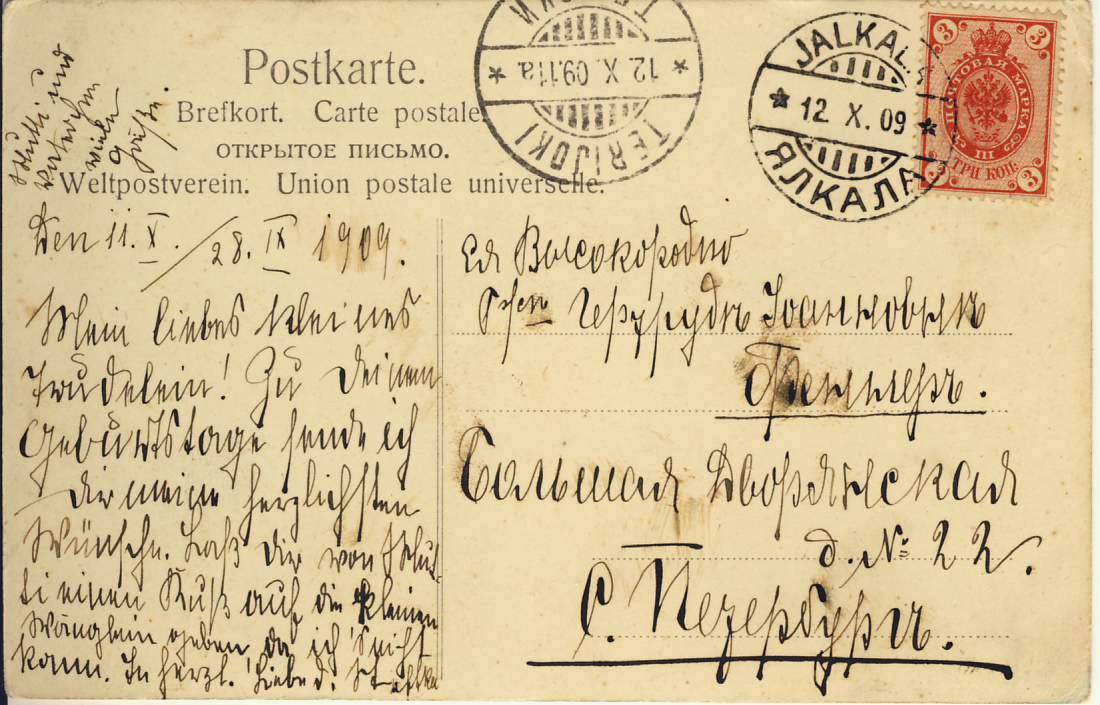 Postkarte.
Brefkort. Carte postale.
ОТКРЫТОЕ ПИСЬМО.
Weltpostverein. Union postale universelle.
TERIJOKI
12. X. 09. 11a.
JALKALA
12 X. 09
ЯЛКАЛА
3 3
ПОЧТОВАЯ МАРКА
III
ТРИ КОП.
3 3
Mutti und
vielen
Grüße
Den 11. X. / 28. IX 1909.
Mein liebes kleines
Trudelein! Zu Deinem
Geburtstage sende ich
Dir meine herzlichsten
Wünsche. Laß Dir von Mut-
ti einen Kuß auf die kleinen
Wänglein geben, da ich's nicht
kann. In herzl. Liebe d.
Ея Высокородію
Гертрудѣ Іоанновнѣ
Большая Дворянская
д. № 22.
С. Петербургъ.